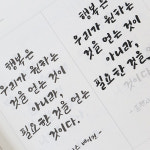 행복은
우리가 원하는
것을 얻는 것이
아니라,
필요한 것을 얻는
것이다.
행복은
우리가 원하는
것을 얻는 것이
아니라,
필요한 것을 얻는
것이다.